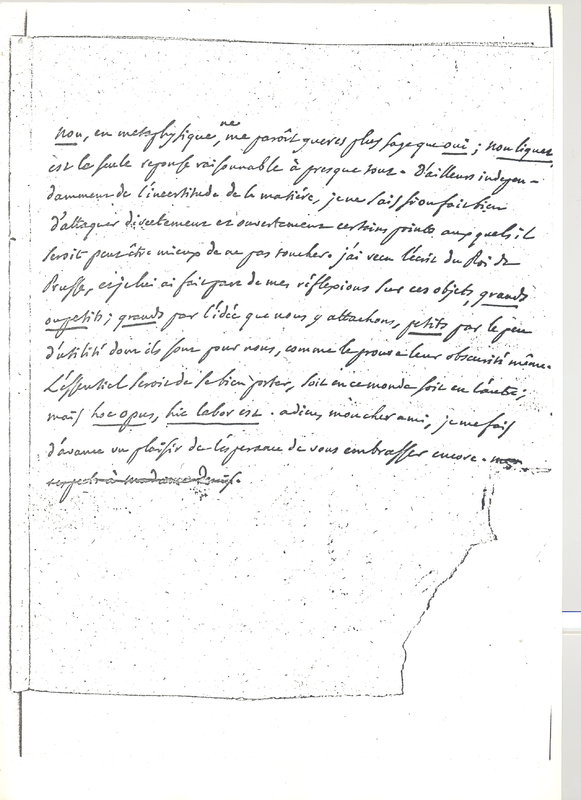 non, en metaphysique, ne me paroît gueres plus sage que oui; non liquet
est la seule reponse raisonnable à presque tout. D'ailleurs indepen-
damment de l'incertitude de la matiére, je ne sais si on fait bien
d'attaquer directement et ouvertement certains points auxquels il
seroit peut être mieux de ne pas toucher. j'ai recu l'écrit du Roi de
Prusse, et je lui ai fait part de mes réflexions sur ces objets, grands
ou petits; grands par l'idée que nous y attachons, petits par le peu
d'utilité dont ils sont pour nous, comme le prouve leur obscurité même.
L'essentiel seroit de se bien porter, soit en ce monde soit en l'autre;
mais hoc opus, hic labor est. adieu mon cher ami, je me fais
d'avance un plaisir de l'esperance de vous embrasser encore. mes
respects à madame Denis.